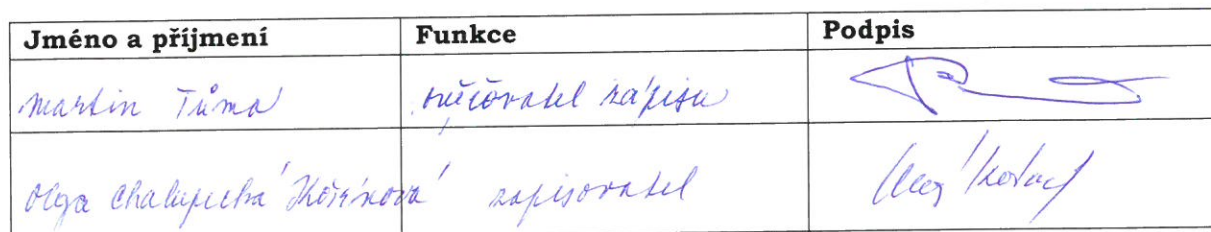 Jméno a příjmení Funkce Podpis
Martin Tůma ověřovatel zápisu
Olga Chalupecká zapisovatel